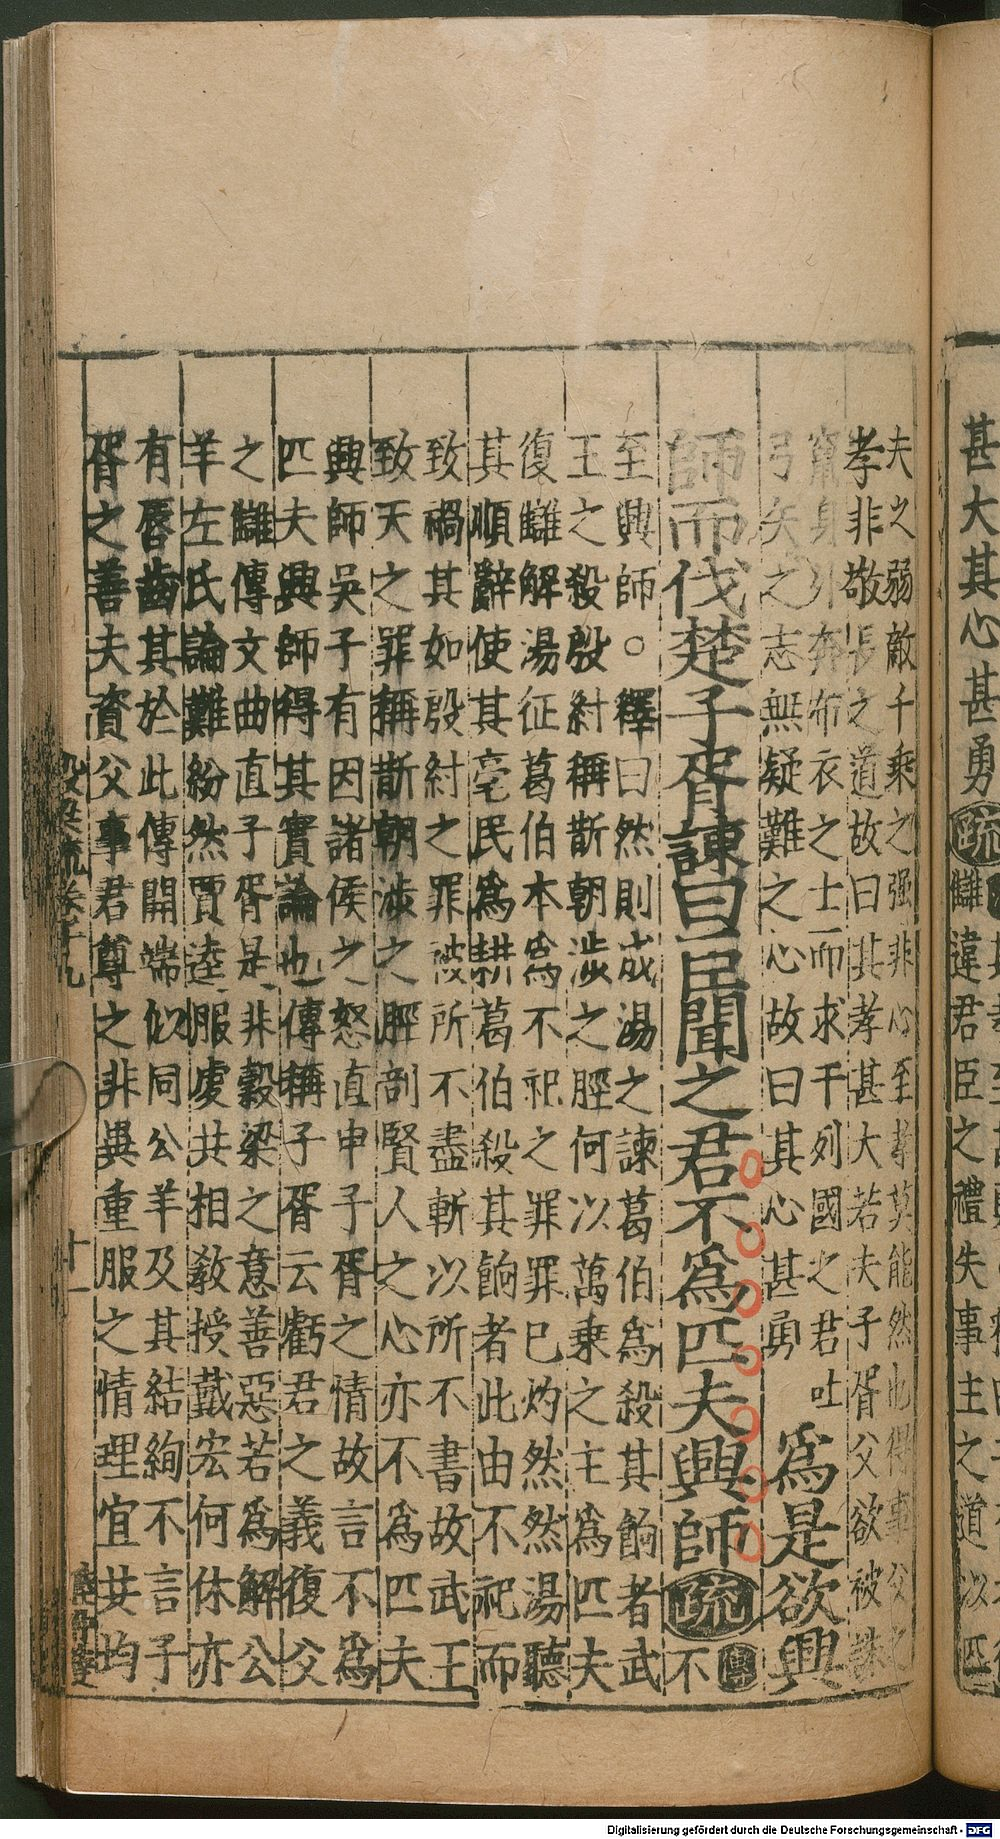 夫之弱敵千乘之强非心至孝莫能然也得事父之
孝非敬長之道故曰其孝甚大若夫子胥父欲被誅
竄身外奔布衣之士而求干列國之君吐
弓矢之志無疑難之心故曰其心甚勇
爲是欲興
師而伐楚子胥諫曰臣聞之君不爲匹夫興師疏傳不
至興師○釋曰然則成湯之諫葛伯爲殺其餉者武
王之殺殷紂稱斮朝涉之脛何以萬乘之主爲匹夫
復讎解湯征葛伯本爲不祀之罪罪已灼然然湯聽
其順辭使其亳民爲耕葛伯殺其餉者此由不祀而
致禍其如殷紂之罪被所不盡斬以所不書故武王
致天之罪稱斮朝涉之脛剖賢人之心亦不爲匹夫
興師吳子有因諸侯之怒直申子胥之情故言不爲
匹夫興師得其實論也傳稱子胥云虧君之義復父
之讎傳文曲直子胥是非穀梁之意善惡若爲解公
羊左氏論難紛然賈逵服虔共相敎授戴宏何休亦
有唇齒其於此傳開端似同公羊及其結絢不言子
胥之善夫資父事君尊之非異重服之情理宜共均
穀梁疏卷十九
十一
甚大其心甚勇疏
讎違君臣之禮失事主之道以匹
Digitalisierung gefördert durch die Deutsche Forschungsgemeinschaft - DFG